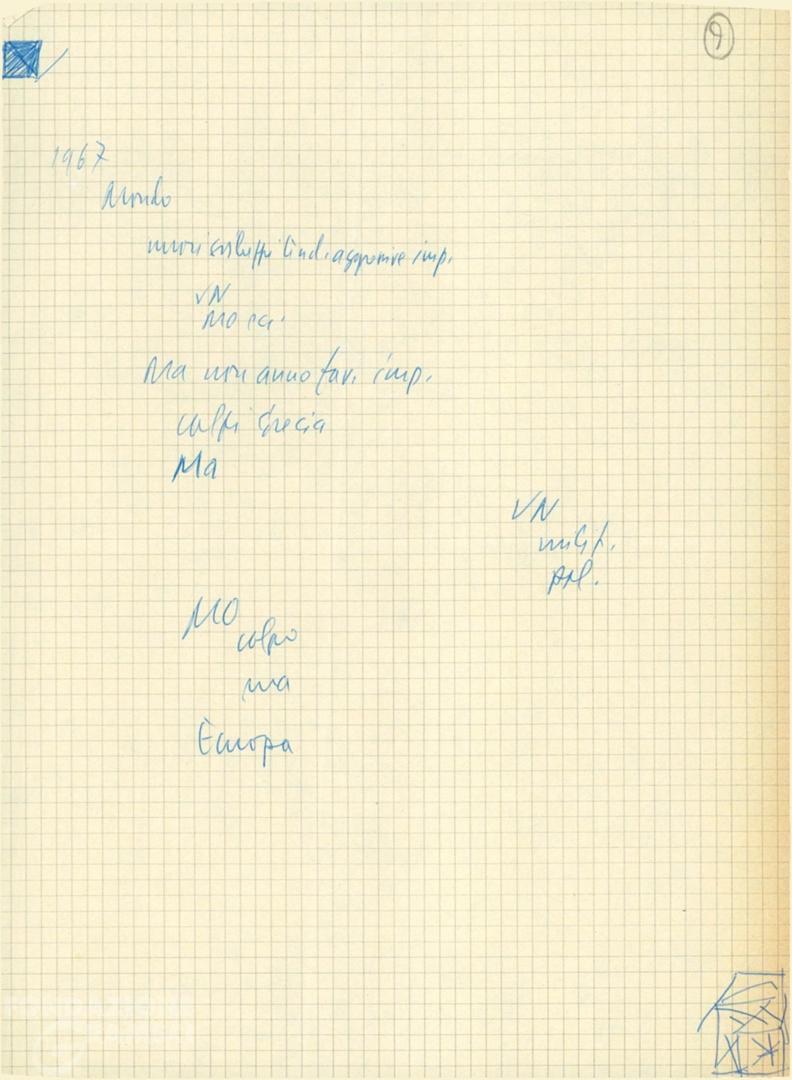 9
1967
Mondo
nuovi sviluppi tend. aggressive imp.
VN
MO
Ma non anno fav. imp.
colpi Grecia
Ma
VN
milit.
MO
colpo
ma
Europa